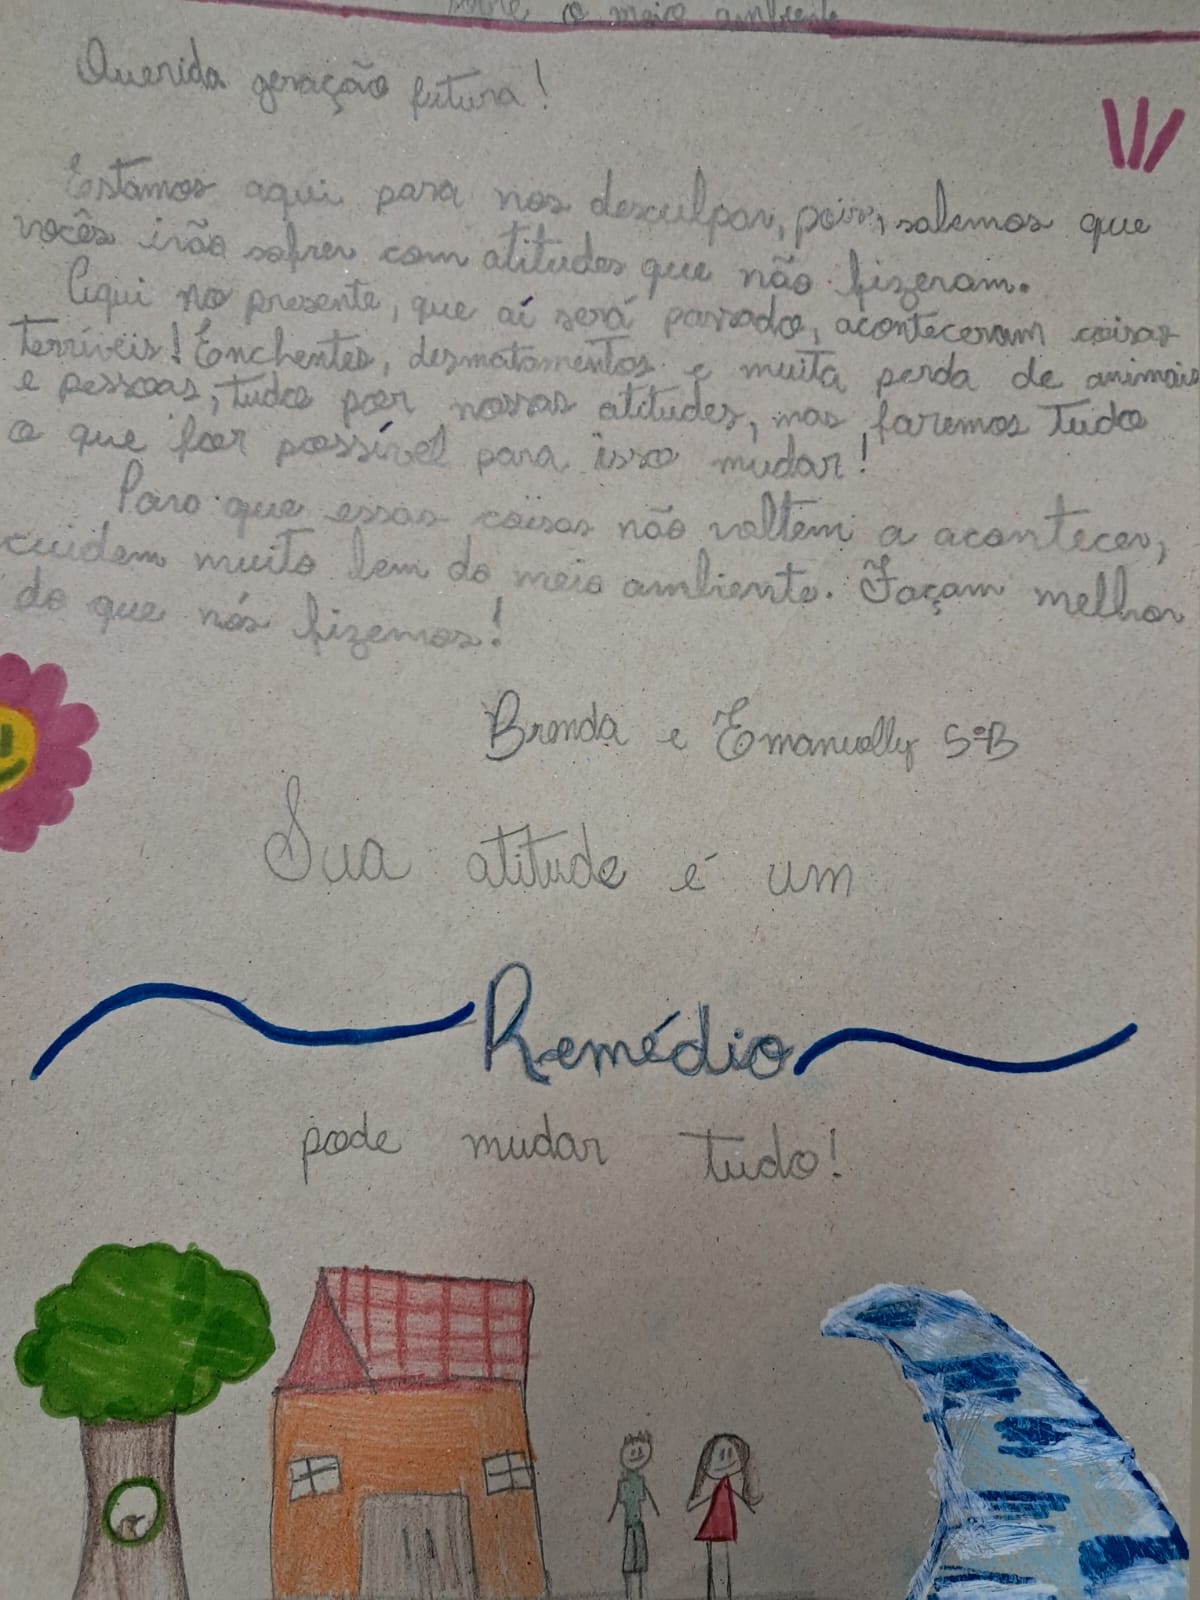 sobre o meio ambiente
Querida geração futura!
Estamos aqui para nos desculpar, pois, sabemos que
vocês irão sofrer com atitudes que não fizeram.
Aqui no presente, que aí será passado, aconteceram coisas
terríveis! Enchentes, desmatamentos e muita perda de animais
e pessoas, tudo por nossas atitudes, mas faremos tudo
o que for possível para isso mudar!
Para que essas coisas não voltem a acontecer,
cuidem muito bem do meio ambiente. Façam melhor
do que nós fizemos!
Brenda e Emanuelly 5ºB
Sua atitude é um
Remédio
pode mudar tudo!